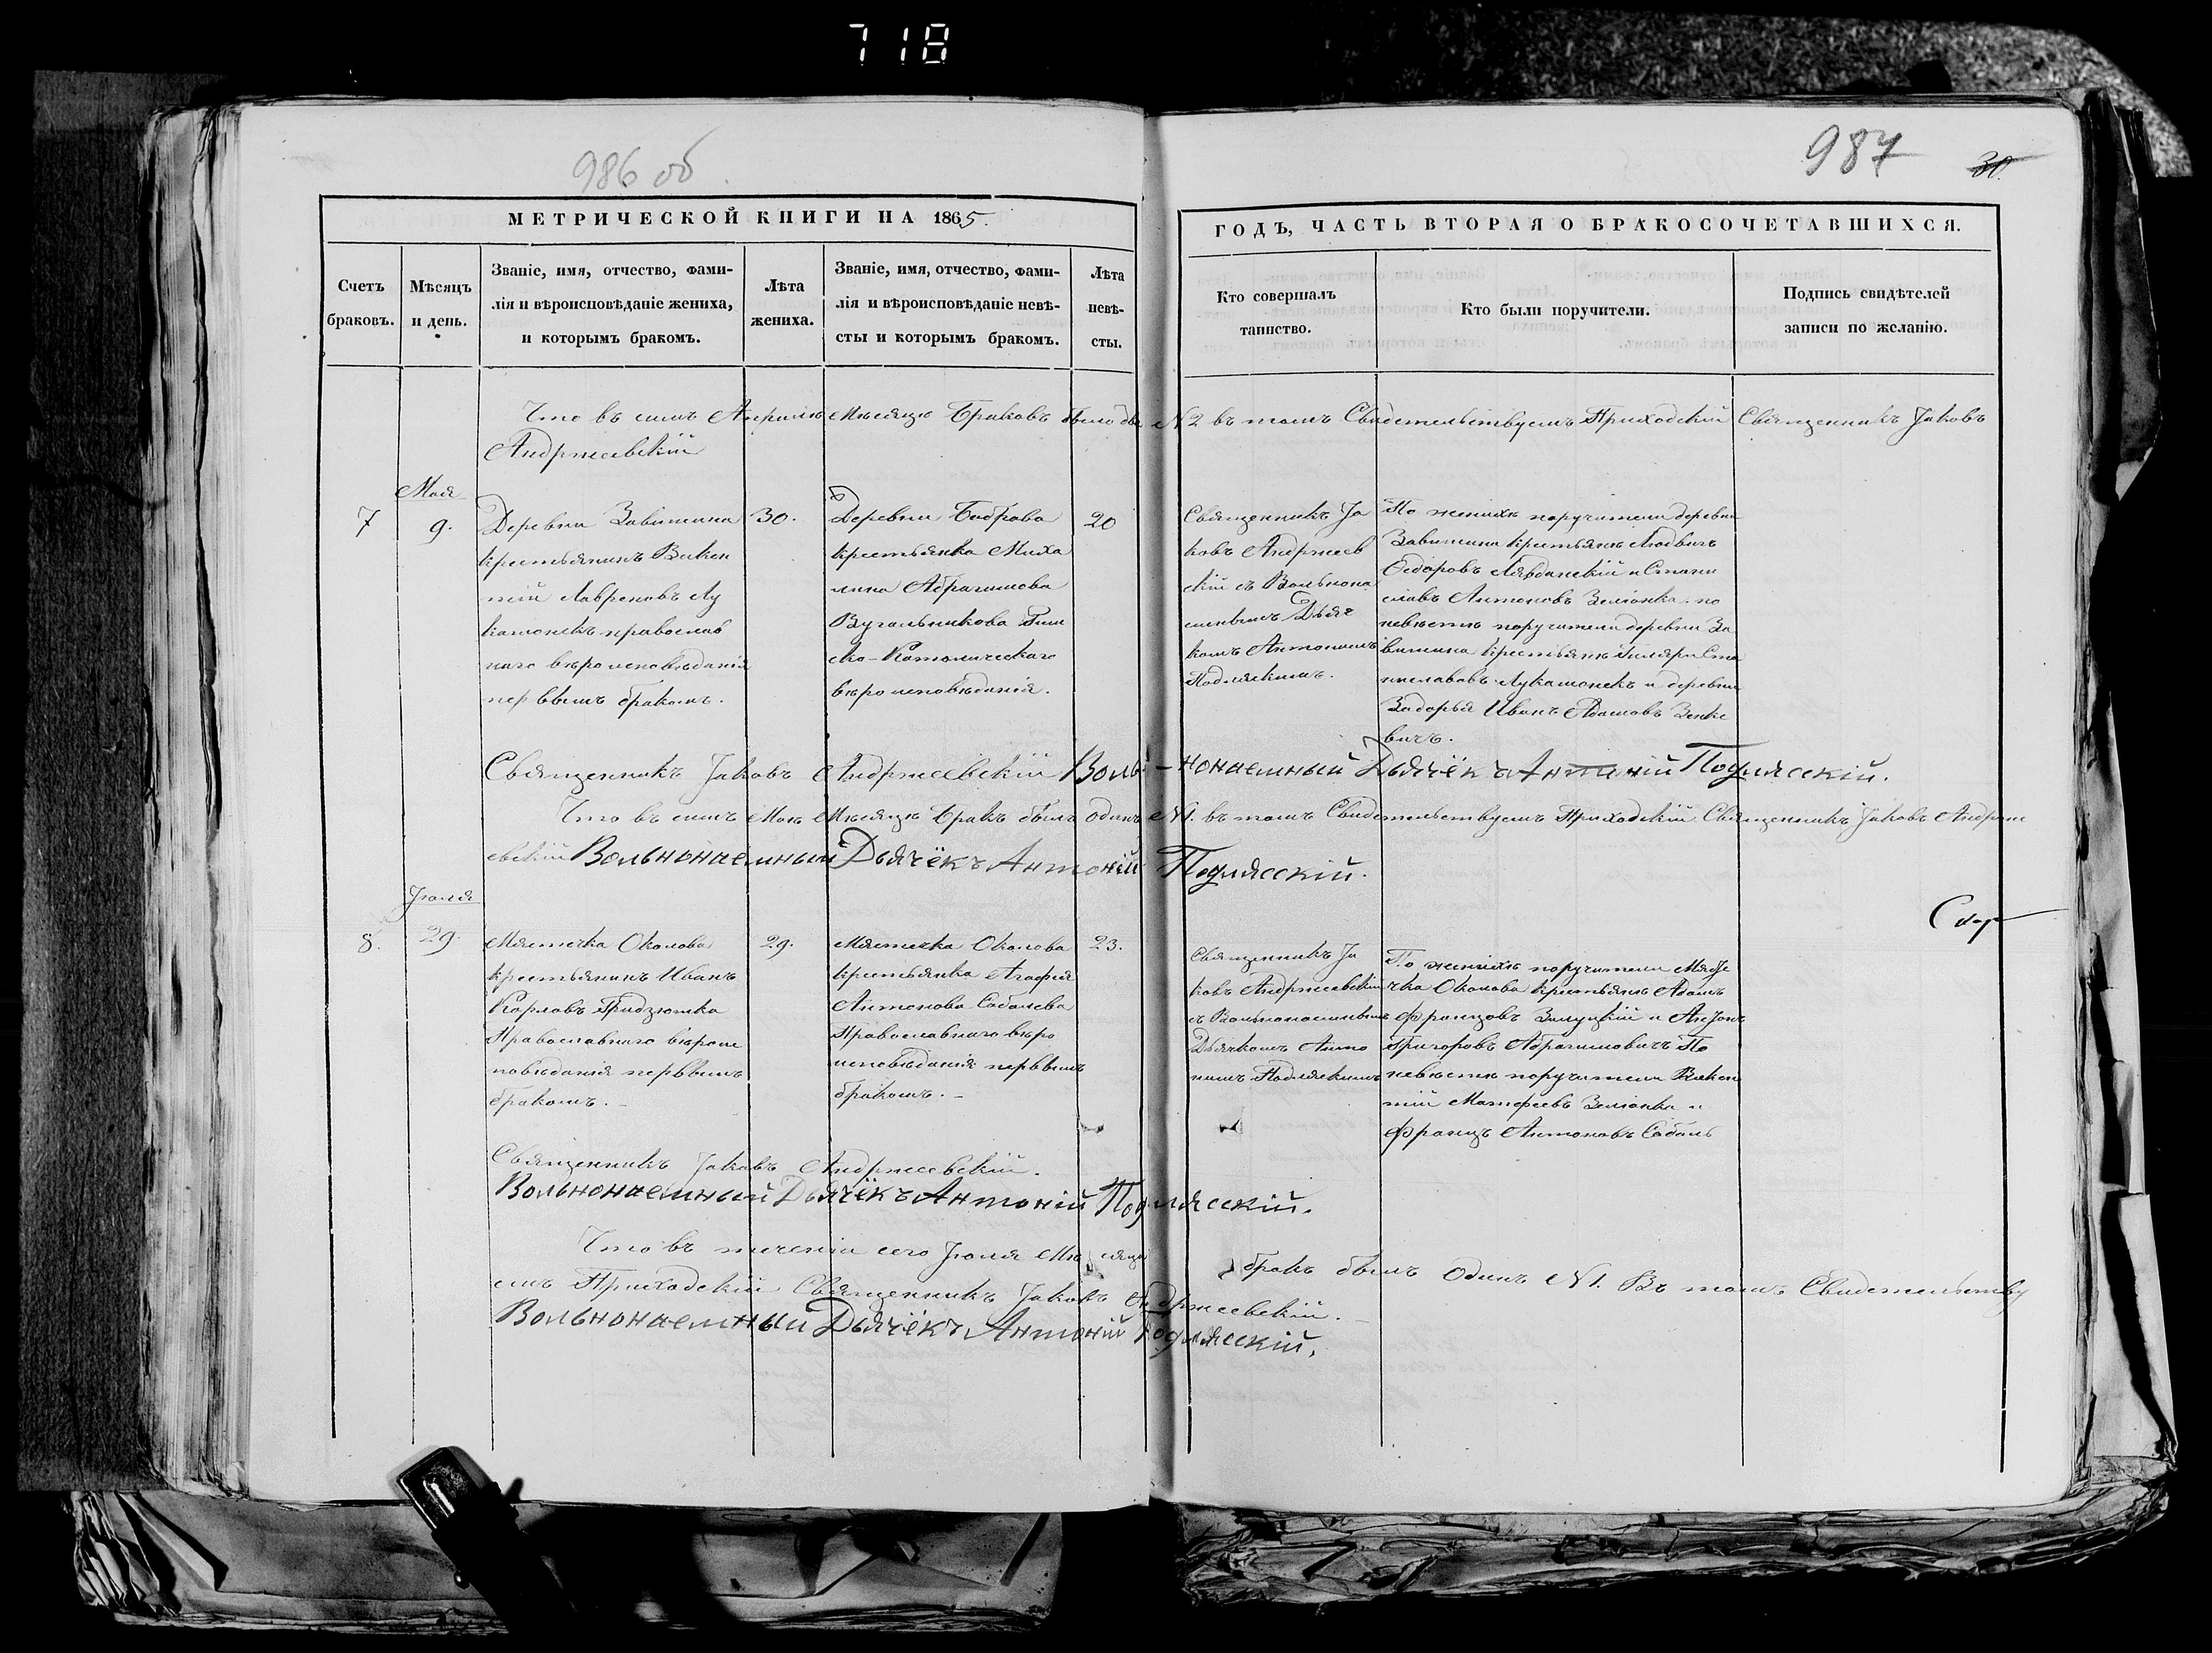 718
986 об.
987
30.
МЕТРИЧЕСКОЙ КНИГИ НА 1865.
ГОДЪ, ЧАСТЬ ВТОРАЯ О БРАКОСОЧЕТАВШИХСЯ.
Счетъ
браковъ.
Мѣсяцъ
и день.
Званіе, имя, отчество, фами-
лія и вѣроисповѣданіе жениха,
и которымъ бракомъ.
Лѣта
жениха.
Званіе, имя, отчество, фами-
лія и вѣроисповѣданіе невѣ-
сты и которымъ бракомъ.
Лѣта
невѣ-
сты.
Кто совершалъ
таинство.
Кто были поручители.
Подпись свидѣтелей
записи по желанію.
Что въ симъ Априлѣ Мѣсяцѣ Браковъ было два N 2 въ томъ Свидетельствуемъ Приходскій Священникъ Іаковъ
Андржеевскій
Мая
7
9.
Деревни Завишина
крестьянинъ Викен
тій Лавреновъ Лу
кашонекъ православ
наго вѣроисповѣданія
перввымъ бракомъ.
30.
Деревни Боброва
крестьянка Миха
лина Абрагимова
Вугальникова Рим
ско-Католическаго
вѣроисповѣданія.
20
Священникъ Іа
ковъ Андржеев
скій съ Вольнона
емнымъ Дьяч
комъ Антоніемъ
Подляскимъ.
По женихѣ поручители деревни
Завишина крестьяне Людвигъ
Ѳедоровъ Лявданскій и Стани
славъ Антоновъ Зеліонка. по
невѣстѣ поручители деревни За
вишина крестьяне Гиляри Ста
ниславовъ Лукашонекъ и деревни
Задорья Иванъ Адамовъ Зенке
вичъ.
Священникъ Іаковъ Андржеевскій Воль-нонаемный Дьячёкъ Антоній Подлясскій.
Что въ симъ Маѣ Мѣсяцѣ бракъ былъ одинъ N 1. въ томъ Свидетельствуемъ Приходскій Священникъ Іаковъ Андрже
евскій Вольнонаемный Дьячёкъ Антоній Подлясскій.
Іюля
8.
29.
Мястечка Околова
крестьянинъ Иванъ
Карловъ Гридзюшка
Православнаго вѣроис
повѣданія перввымъ
бракомъ. –
29.
Мястечка Околова
крестьянка Агафія
Антонова Соболева
Православнаго вѣро
исповѣданія перввымъ
бракомъ. –
23.
Священникъ Іа
ковъ Андржеевскій
съ Вольнонаемнымъ
Дьячкомъ Анто
ніемъ Подляскимъ
По женихѣ поручители Мясте
чка Околова крестьяне Адамъ
Францовъ Залуцкій и Антонъ
Григоровъ Абрагимовичъ По
невѣстѣ поручители Викен
тій Матфеевъ Зеліонка и
Францъ Антоновъ Соболь
Священникъ Іаковъ Андржеевскій.
Вольнонаемный Дьячёкъ Антоній Подлясскій.
Что въ теченіи сего Іюля Мѣсяца бракъ былъ одинъ N 1. Въ томъ Свидетельству
емъ Приходскій Священникъ Іаковъ Андржеевскій. –
Вольнонаемный Дьячёкъ Антоній Подлясскій.